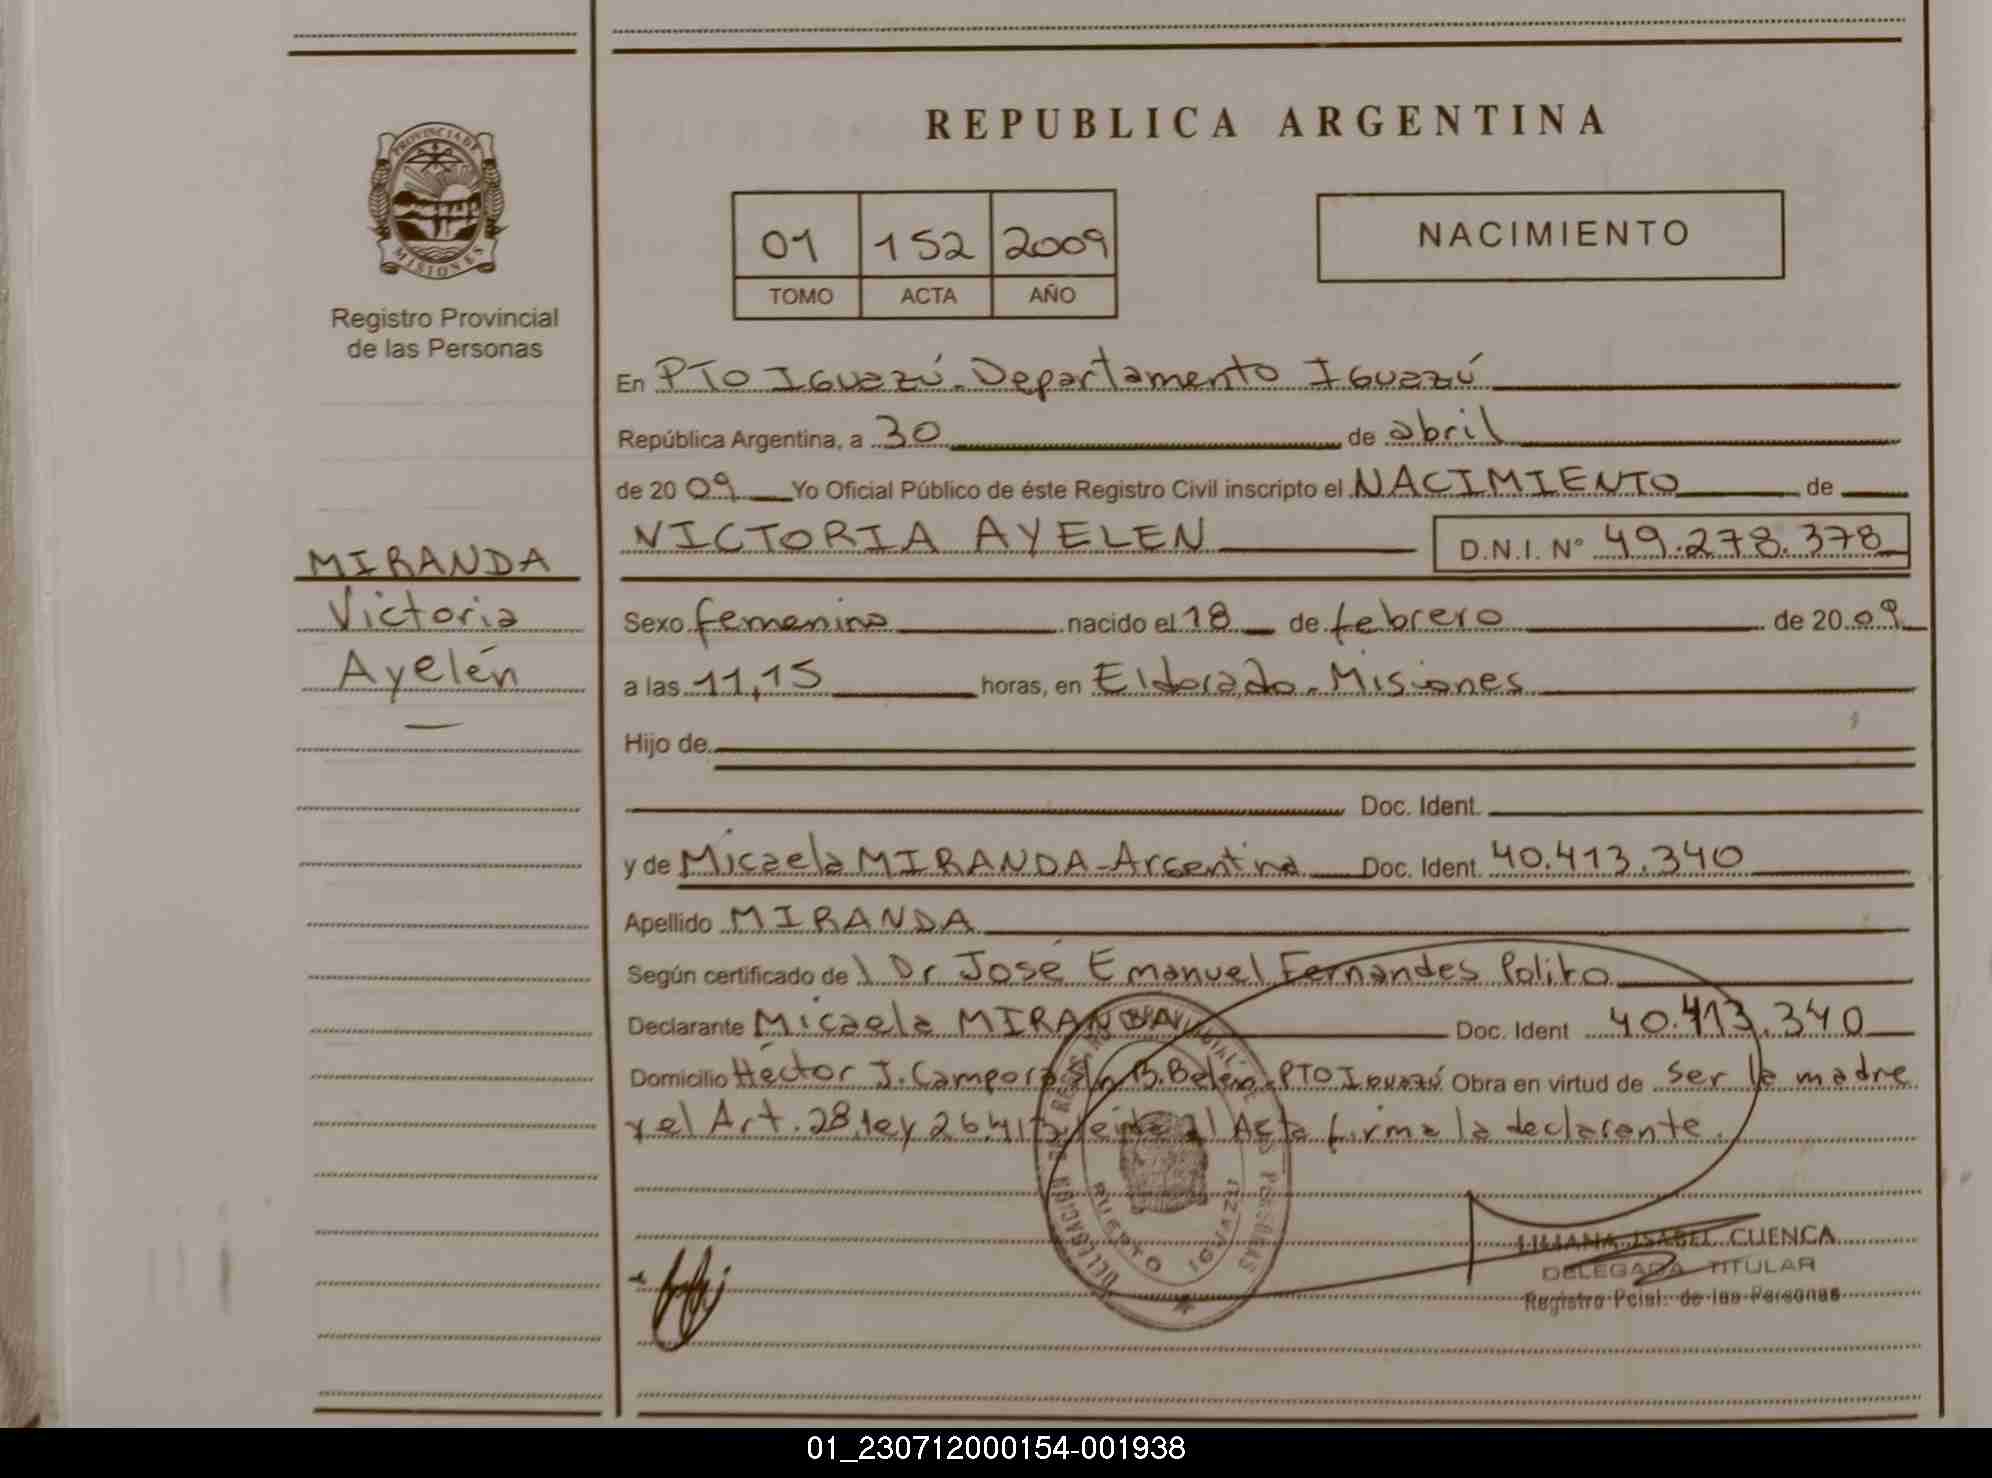 REPUBLICA ARGENTINA
PROVINCIA DE
MISIONES
Registro Provincial
de las Personas
01 152 2009
TOMO ACTA AÑO
NACIMIENTO
En PTO Iguazú. Departamento Iguazú
República Argentina, a 30 de abril
de 2009 Yo Oficial Público de éste Registro Civil inscripto el NACIMIENTO de
MIRANDA
Victoria
Ayelén
VICTORIA AYELEN D.N.I. Nº 49.278.378
Sexo femenino nacido el 18 de febrero de 2009
a las 11,15 horas, en Eldorado. Misiones
Hijo de
Doc. Ident.
y de Micaela MIRANDA-Argentina Doc. Ident. 40.413.340
Apellido MIRANDA
Según certificado de Dr José Emanuel Fernandes Polito
Declarante Micaela MIRANDA Doc. Ident 40.413.340
Domicilio Héctor J. Campora s/n B. Belén. PTO Iguazú Obra en virtud de ser la madre
y el Art. 28, ley 26.413, Acta firma la declarante.
DELEGACION DE PERSONAS
PUERTO IGUAZU
LILIANA ISABEL CUENCA
DELEGADA TITULAR
Registro Pcial. de las Personas
01_230712000154-001938